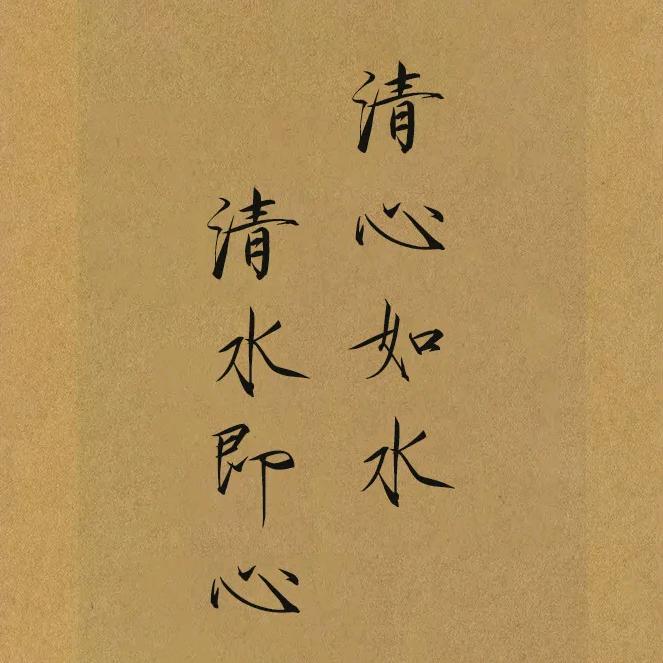 清心如水
清水即心